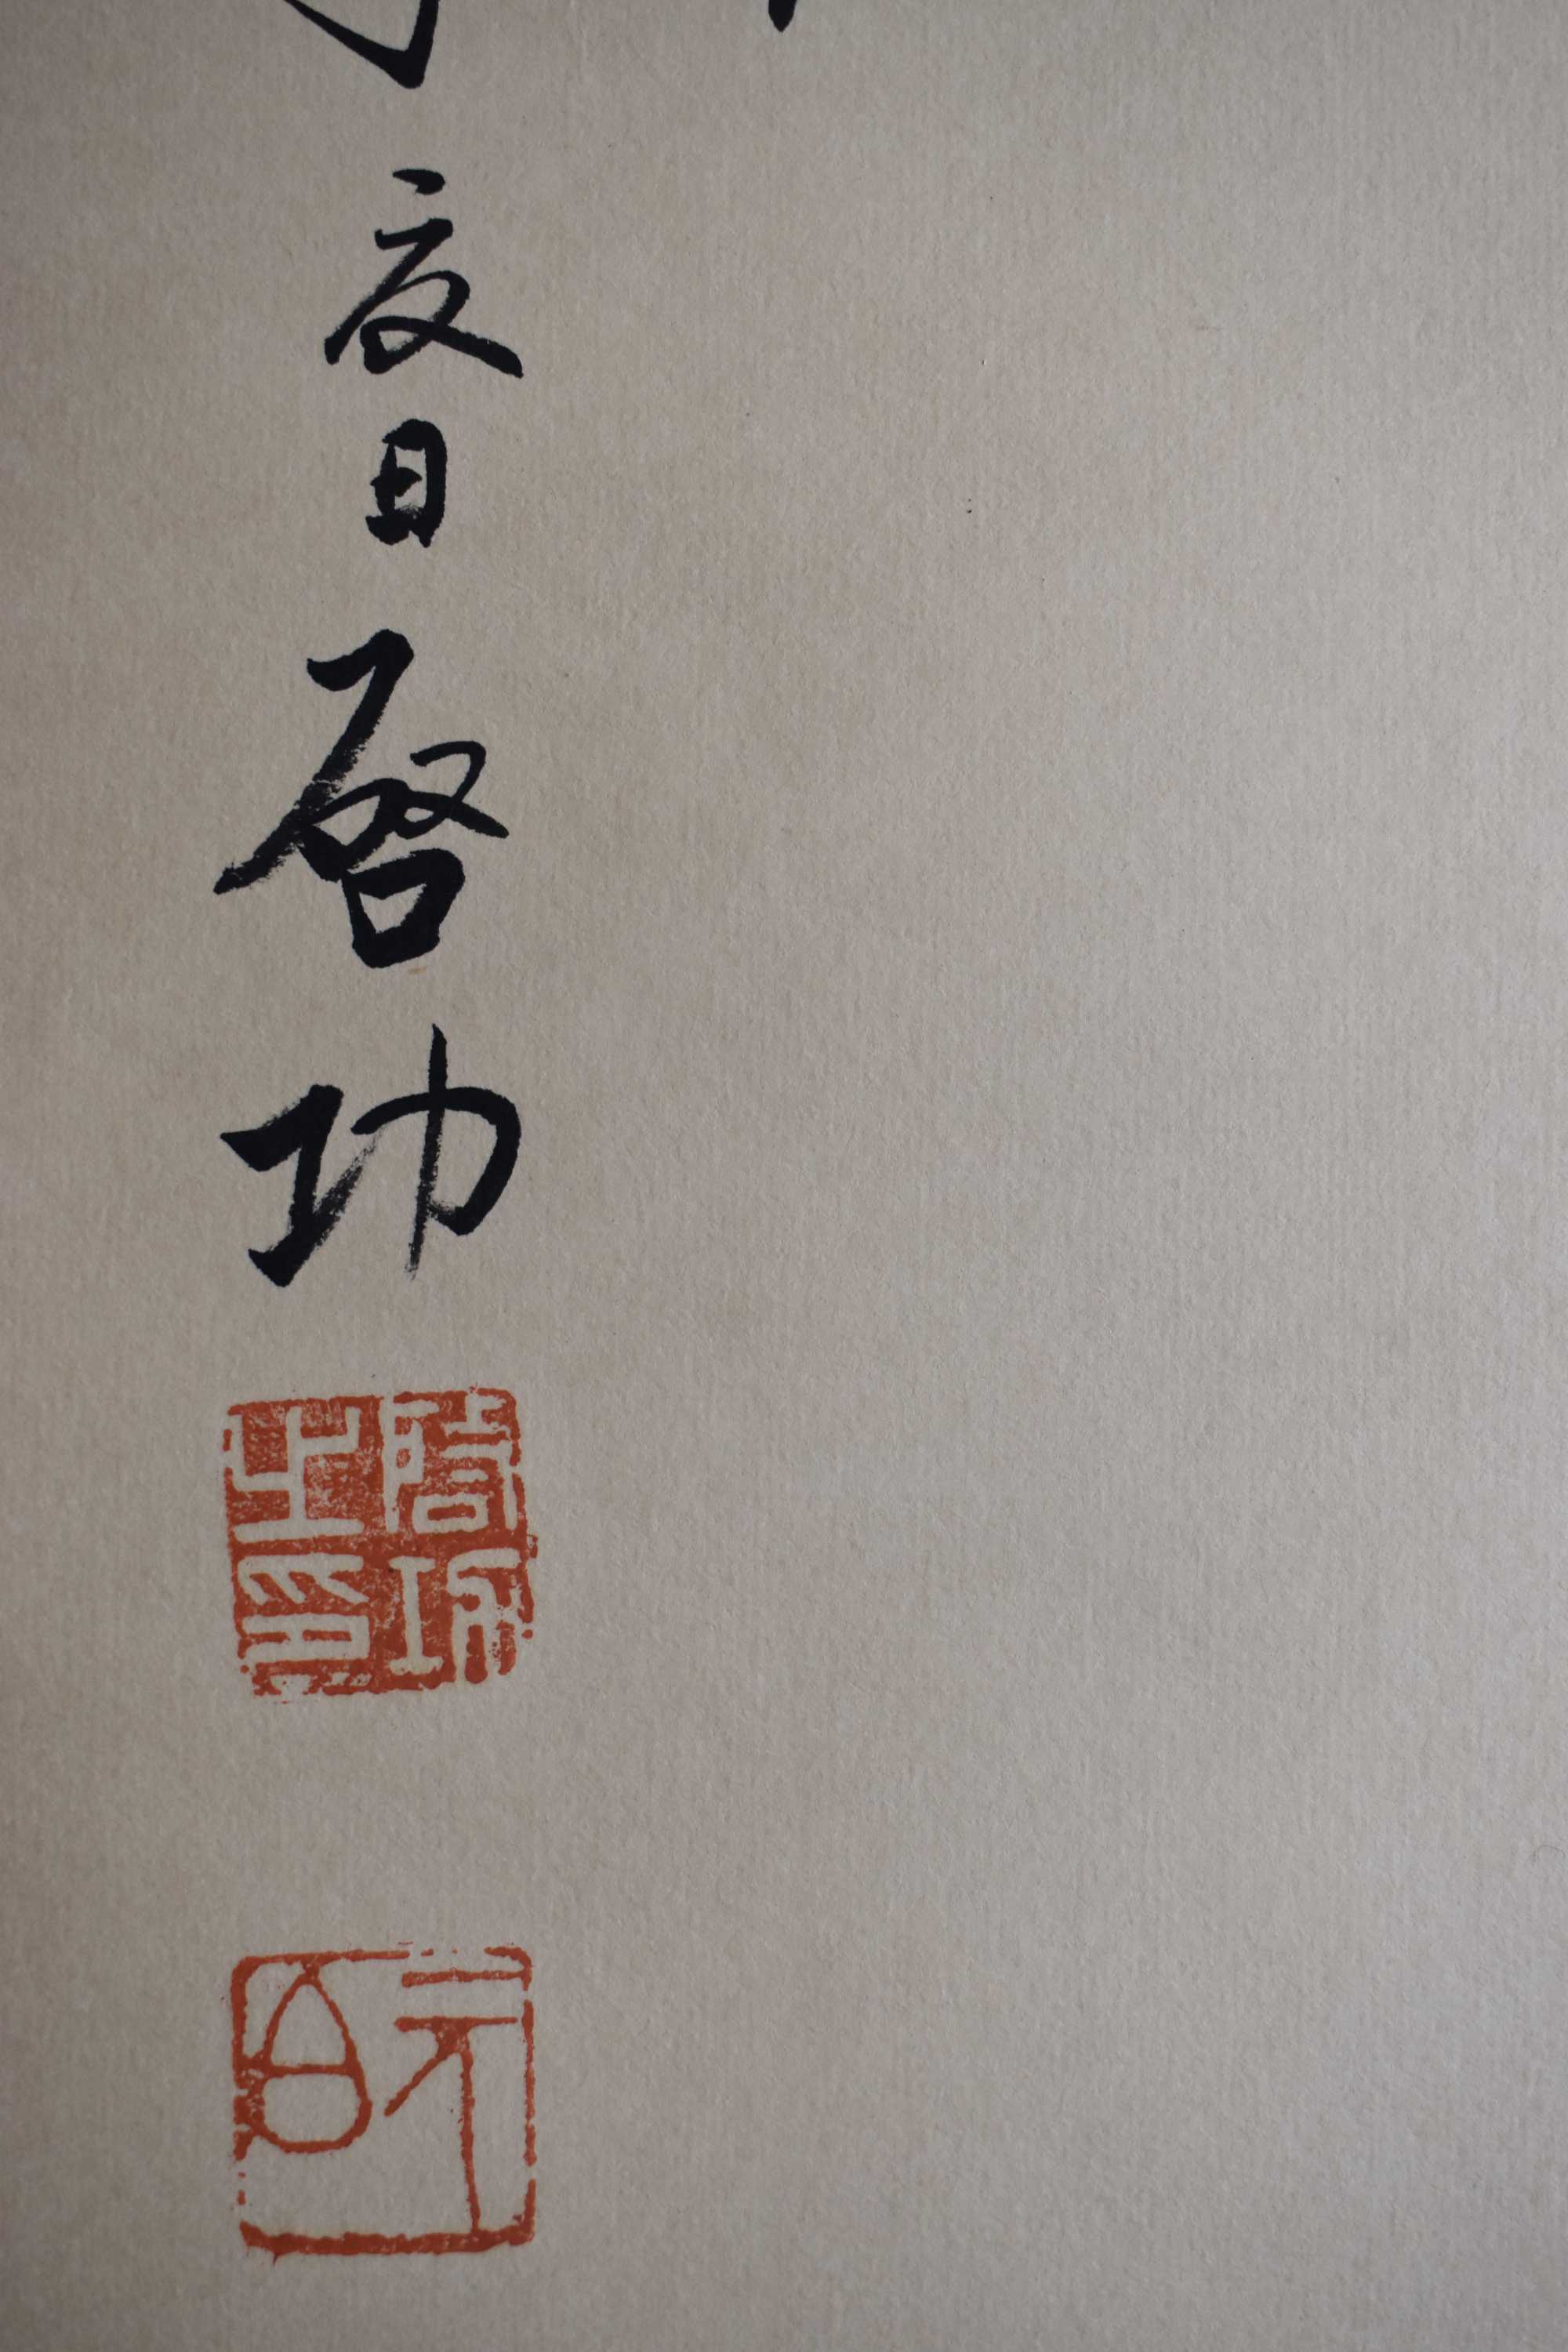 夏日啓功
啓功之印
元白